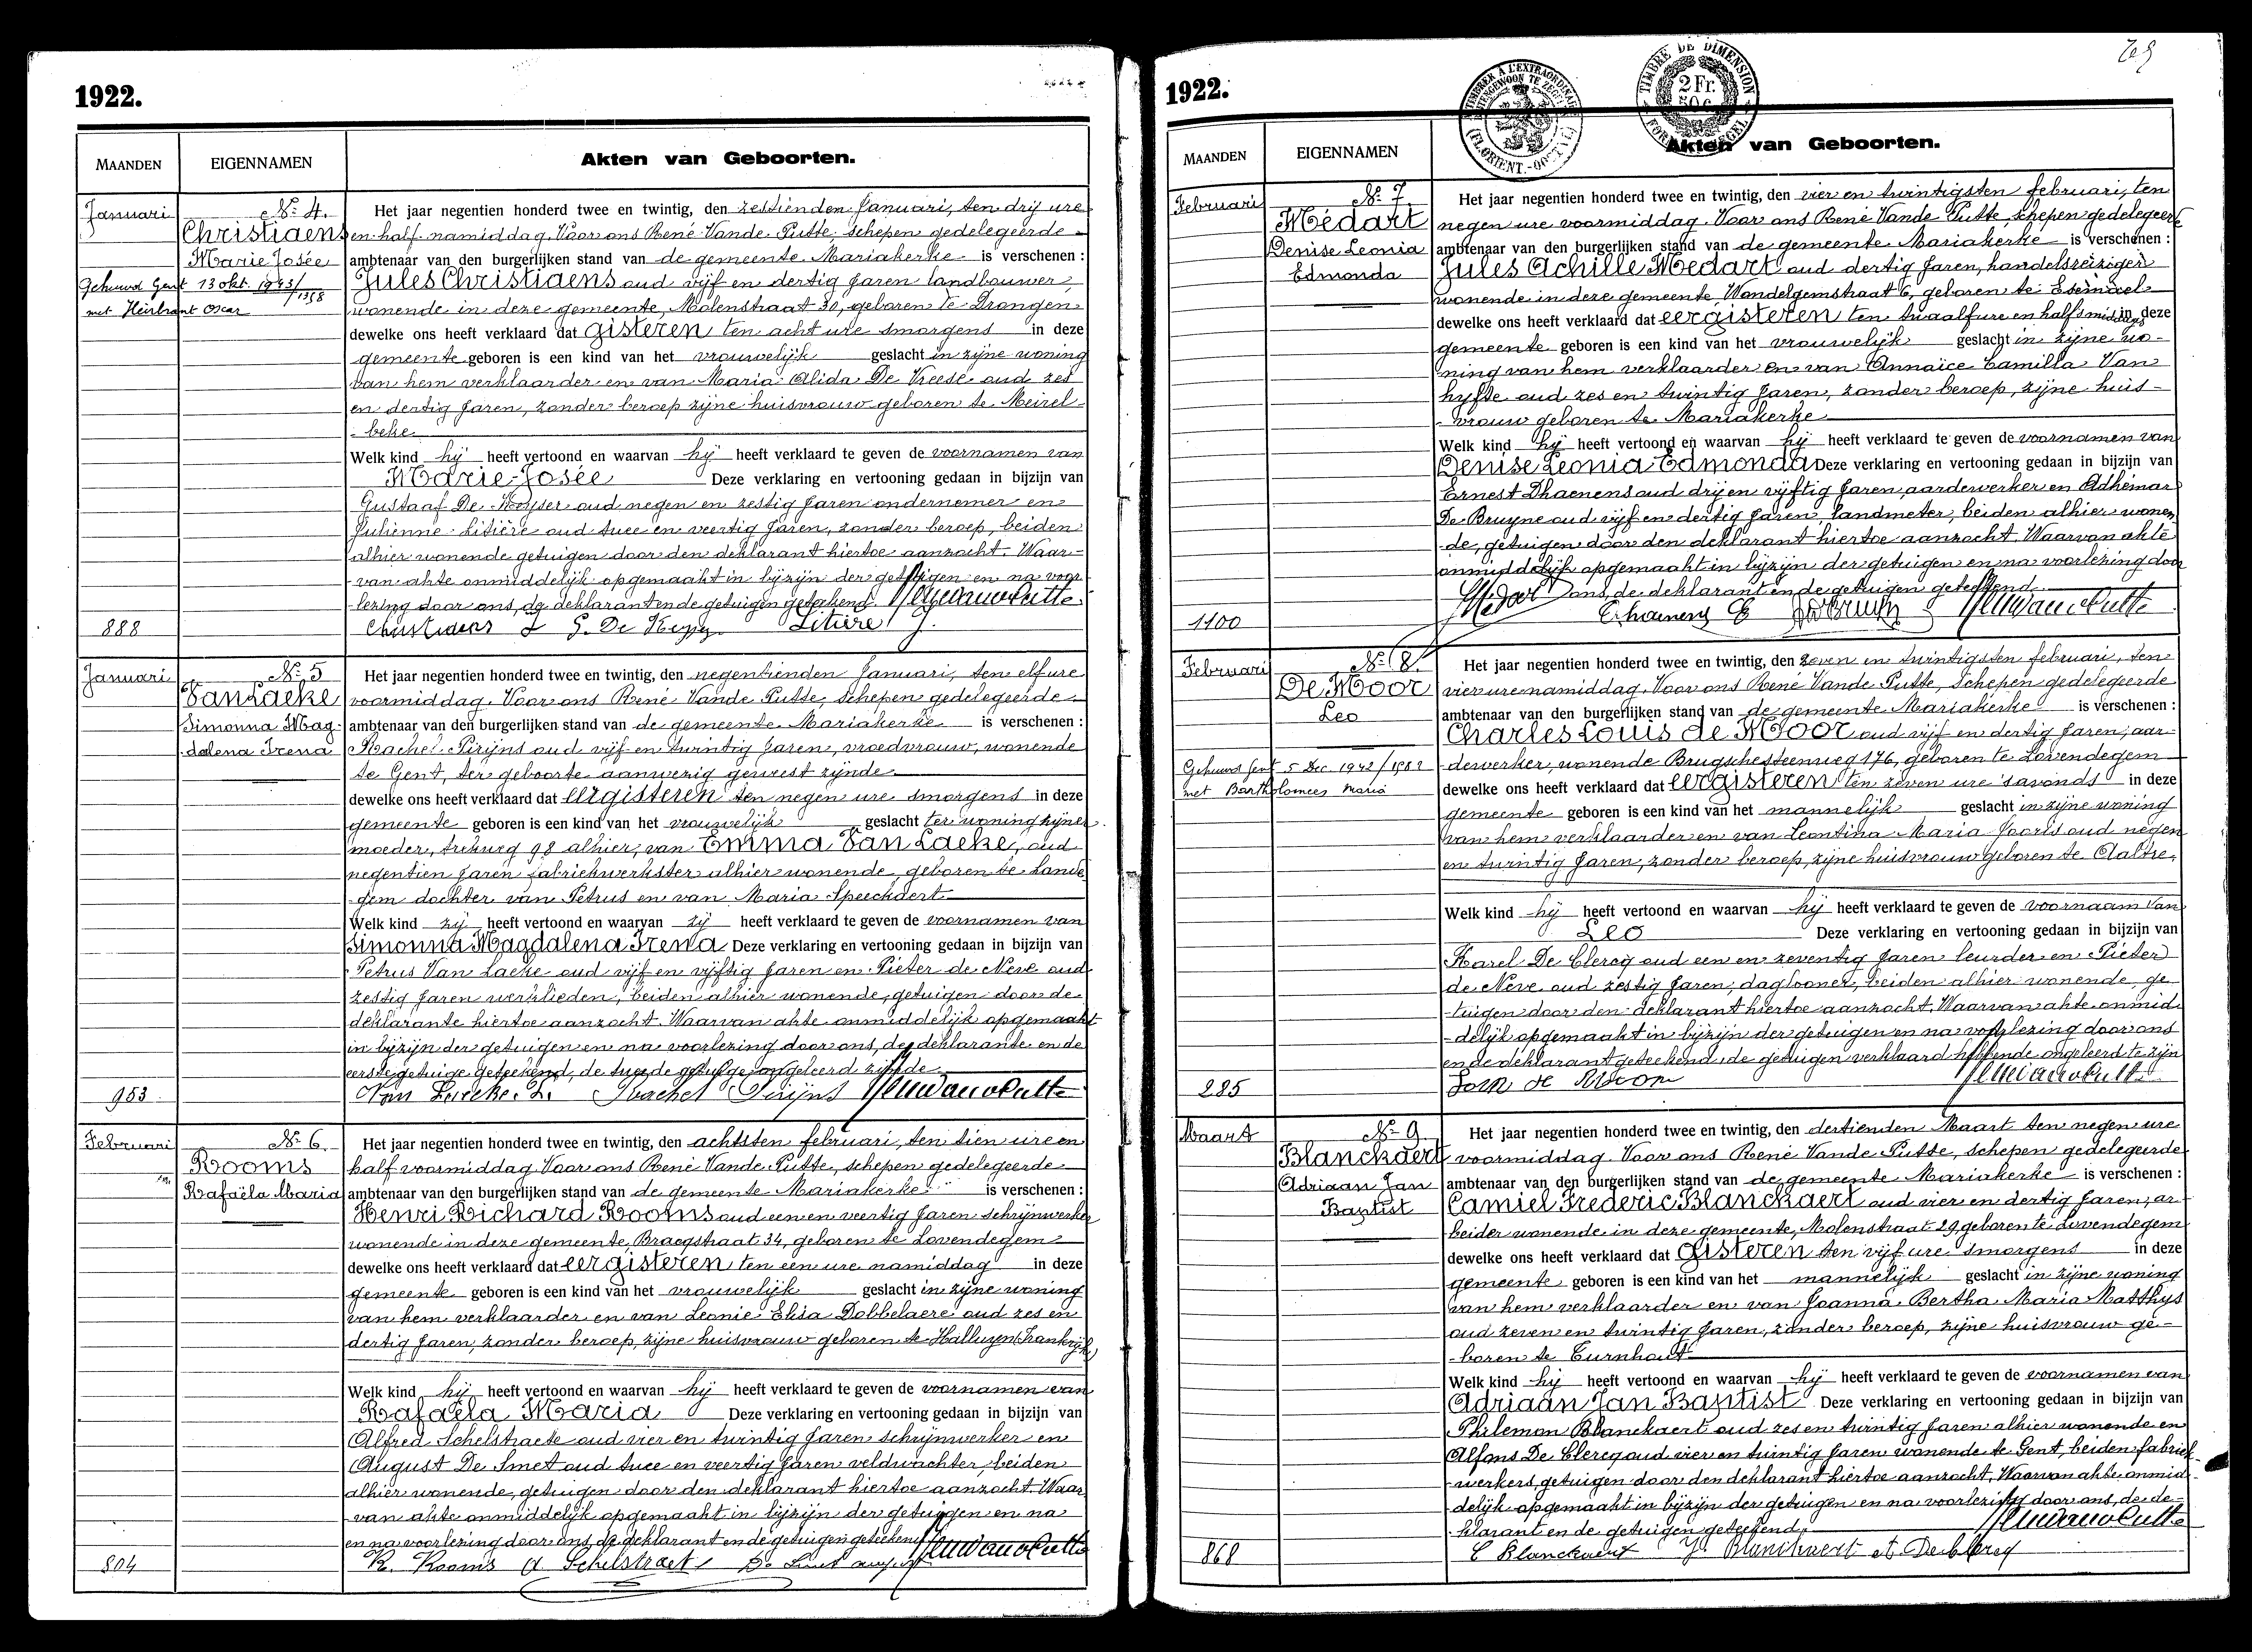 1922.
MAANDEN
EIGENNAMEN
Akten van Geboorten.
Januari
Nr 4.
Christiaens
Marie Josée
Gehuwd Gent 13 okt. 1943/1358
met Heirbrant Oscar
Het jaar negentien honderd twee en twintig, den zestienden Januari, ten drij ure
en half namiddag. Voor ons René Vande Putte, schepen gedelegeerde
ambtenaar van den burgerlijken stand van de gemeente Mariakerke is verschenen :
Jules Christiaens oud vijf en dertig Jaren landbouwer,
wonende in deze gemeente, Molenstraat 30, geboren te Drongen
dewelke ons heeft verklaard dat gisteren ten acht ure smorgens in deze
gemeente geboren is een kind van het vrouwelijk geslacht in zijne woning
van hem verklaarder en van Maria Alida De Vreese oud zes
en dertig Jaren, zonder beroep zijne huisvrouw geboren te Meirel-
-beke
Welk kind hij heeft vertoond en waarvan hij heeft verklaard te geven de voornamen van
Marie-Josée Deze verklaring en vertooning gedaan in bijzijn van
Gustaaf De Keyser oud negen en zestig Jaren ondernemer en
Julienne Litière oud twee en veertig Jaren, zonder beroep, beiden
alhier wonende getuigen door den deklarant hiertoe aanzocht. Waar-
-van akte onmiddelijk opgemaakt in bijzijn der getuigen en na voor
-lezing door ons, de deklarant en de getuigen geteekend.
Christiaens J G. De Keyser Litière J.
888
Januari
Nr 5
Van Laeke
Simonna Mag-
-dalena Irena
Het jaar negentien honderd twee en twintig, den negentienden Januari, ten elf ure
voormiddag. Voor ons René Vande Putte, schepen gedelegeerde
ambtenaar van den burgerlijken stand van de gemeente Mariakerke is verschenen :
Rachel Pirijns oud vijf en twintig Jaren, vroedvrouw, wonende
te Gent, ter geboorte aanwezig geweest zijnde
dewelke ons heeft verklaard dat eergisteren ten negen ure smorgens in deze
gemeente geboren is een kind van het vrouwelijk geslacht ter woning zijner
moeder, trekweg 98 alhier, van Emma Van Laeke, oud
negentien Jaren fabriekwerkster alhier wonende, geboren te Lande
-gem dochter van Petrus en van Maria Speeckaert
Welk kind zij heeft vertoond en waarvan zij heeft verklaard te geven de voornamen van
Simonna Magdalena Irena Deze verklaring en vertooning gedaan in bijzijn van
Petrus Van Laeke oud vijf en vijftig Jaren en Pieter de Neve oud
zestig Jaren werklieden, beiden alhier wonende, getuigen door de
deklarante hiertoe aanzocht. Waarvan akte onmiddelijk opgemaakt
in bijzijn der getuigen en na voorlezing door ons, de deklarante en de
eerste getuige geteekend, de tweede getuige ongeleerd zijnde
Rachel Pirijns
953
Februari
Nr 6.
Rooms
Rafaëla Maria
Het jaar negentien honderd twee en twintig, den achtsten februari, ten tien ure en
half voormiddag Voor ons René Vande Putte, schepen gedelegeerde
ambtenaar van den burgerlijken stand van de gemeente Mariakerke is verschenen :
Henri Richard Rooms oud een en veertig Jaren schrijnwerker
wonende in deze gemeente, Braegstraat 34, geboren te Lovendegem
dewelke ons heeft verklaard dat eergisteren ten een ure namiddag in deze
gemeente geboren is een kind van het vrouwelijk geslacht in zijne woning
van hem verklaarder en van Leonie Elisa Dobbelaere oud zes en
dertig Jaren, zonder beroep, zijne huisvrouw geboren te Halluyen (Frankrijk)
Welk kind hij heeft vertoond en waarvan hij heeft verklaard te geven de voornamen van
Rafaëla Maria Deze verklaring en vertooning gedaan in bijzijn van
Alfred Schelstraete oud vier en twintig Jaren schrijnwerker en
August De Smet oud twee en veertig Jaren veldwachter, beiden
alhier wonende, getuigen door den deklarant hiertoe aanzocht. Waar
-van akte onmiddelijk opgemaakt in bijzijn der getuigen en na
en na voorlezing door ons, de deklarant en de getuigen geteekend
R. Rooms A Schelstraete
804
1922.
TIMBRE DE DIMENSION
2 Fr.
50 c.
MAANDEN
EIGENNAMEN
Akten van Geboorten.
Februari
Nr 7
Médart
Denise Leonia
Edmonda
Het jaar negentien honderd twee en twintig, den vier en twintigsten februari, ten
negen ure voormiddag. Voor ons René Vande Putte, schepen gedelegeerde
ambtenaar van den burgerlijken stand van de gemeente Mariakerke is verschenen :
Jules Achille Medart oud dertig Jaren, handelsreiziger
wonende in deze gemeente, Wondelgemstraat 6, geboren te Esemael
dewelke ons heeft verklaard dat eergisteren ten twaalf ure en half smiddags in deze
gemeente geboren is een kind van het vrouwelijk geslacht in zijne wo-
-ning van hem verklaarder en van Annaïce Camilla Van
hyfte oud zes en twintig Jaren, zonder beroep, zijne huis-
-vrouw geboren te Mariakerke
Welk kind hij heeft vertoond en waarvan hij heeft verklaard te geven de voornamen van
Denise Leonia Edmonda Deze verklaring en vertooning gedaan in bijzijn van
Ernest Dhaenens oud drij en vijftig Jaren, aardewerker en Adhémar
De Bruyne oud vijf en dertig Jaren, landmeter, beiden alhier wonen
-de, getuigen door den deklarant hiertoe aanzocht. Waarvan akte
onmiddelijk opgemaakt in bijzijn der getuigen en na voorlezing door
ons, de deklarant en de getuigen geteekend
Medart Dhaenens E
1100
Februari
Nr 8.
De Moor
Leo
Gehuwd Gent 5 Dec. 1942/1582
met Bartholomees Maria
Het jaar negentien honderd twee en twintig, den zeven en twintigsten februari, ten
vier ure namiddag. Voor ons René Vande Putte, schepen gedelegeerde
ambtenaar van den burgerlijken stand van de gemeente Mariakerke is verschenen :
Charles Louis de Moor oud vijf en dertig Jaren, aar-
-dewerker, wonende Brugschesteenweg 176, geboren te Lovendegem
dewelke ons heeft verklaard dat eergisteren ten zeven ure savonds in deze
gemeente geboren is een kind van het mannelijk geslacht in zijne woning
van hem verklaarder en van Leontina Maria Jooris oud negen
en twintig Jaren, zonder beroep, zijne huisvrouw geboren te Aaltre,
Welk kind hij heeft vertoond en waarvan hij heeft verklaard te geven de voornaam van
Leo Deze verklaring en vertooning gedaan in bijzijn van
Karel De Clercq oud een en zeventig Jaren leurder en Pieter
de Neve oud zestig Jaren, daglooner, beiden alhier wonende, ge
-tuigen door den deklarant hiertoe aanzocht. Waarvan akte onmid
-delijk opgemaakt in bijzijn der getuigen en na voorlezing door ons
en de deklarant geteekend, de getuigen verklaard hebbende ongeleerd te zijn
285
Maart
Nr 9
Blanckaert
Adriaan Jan
Baptist
Het jaar negentien honderd twee en twintig, den dertienden Maart ten negen ure
voormiddag. Voor ons René Vande Putte, schepen gedelegeerde
ambtenaar van den burgerlijken stand van de gemeente Mariakerke is verschenen :
Camiel Frederic Blanckaert oud vier en dertig Jaren, ar
-beider wonende in deze gemeente, Molenstraat 29, geboren te Lovendegem
dewelke ons heeft verklaard dat gisteren ten vijf ure smorgens in deze
gemeente geboren is een kind van het mannelijk geslacht in zijne woning
van hem verklaarder en van Joanna Bertha Maria Matthys
oud zeven en twintig Jaren, zonder beroep, zijne huisvrouw ge-
-boren te Turnhout
Welk kind hij heeft vertoond en waarvan hij heeft verklaard te geven de voornamen van
Adriaan Jan Baptist Deze verklaring en vertooning gedaan in bijzijn van
Philemon Blanckaert oud zes en twintig Jaren alhier wonende en
Alfons De Clercq oud vier en twintig Jaren wonende te Gent, beiden fabriek
-werkers, getuigen door den deklarant hiertoe aanzocht. Waarvan akte onmid
-delijk opgemaakt in bijzijn der getuigen en na voorlezing door ons, de de-
-klarant en de getuigen geteekend.
C Blanckaert Blanckaert A Declercq
868